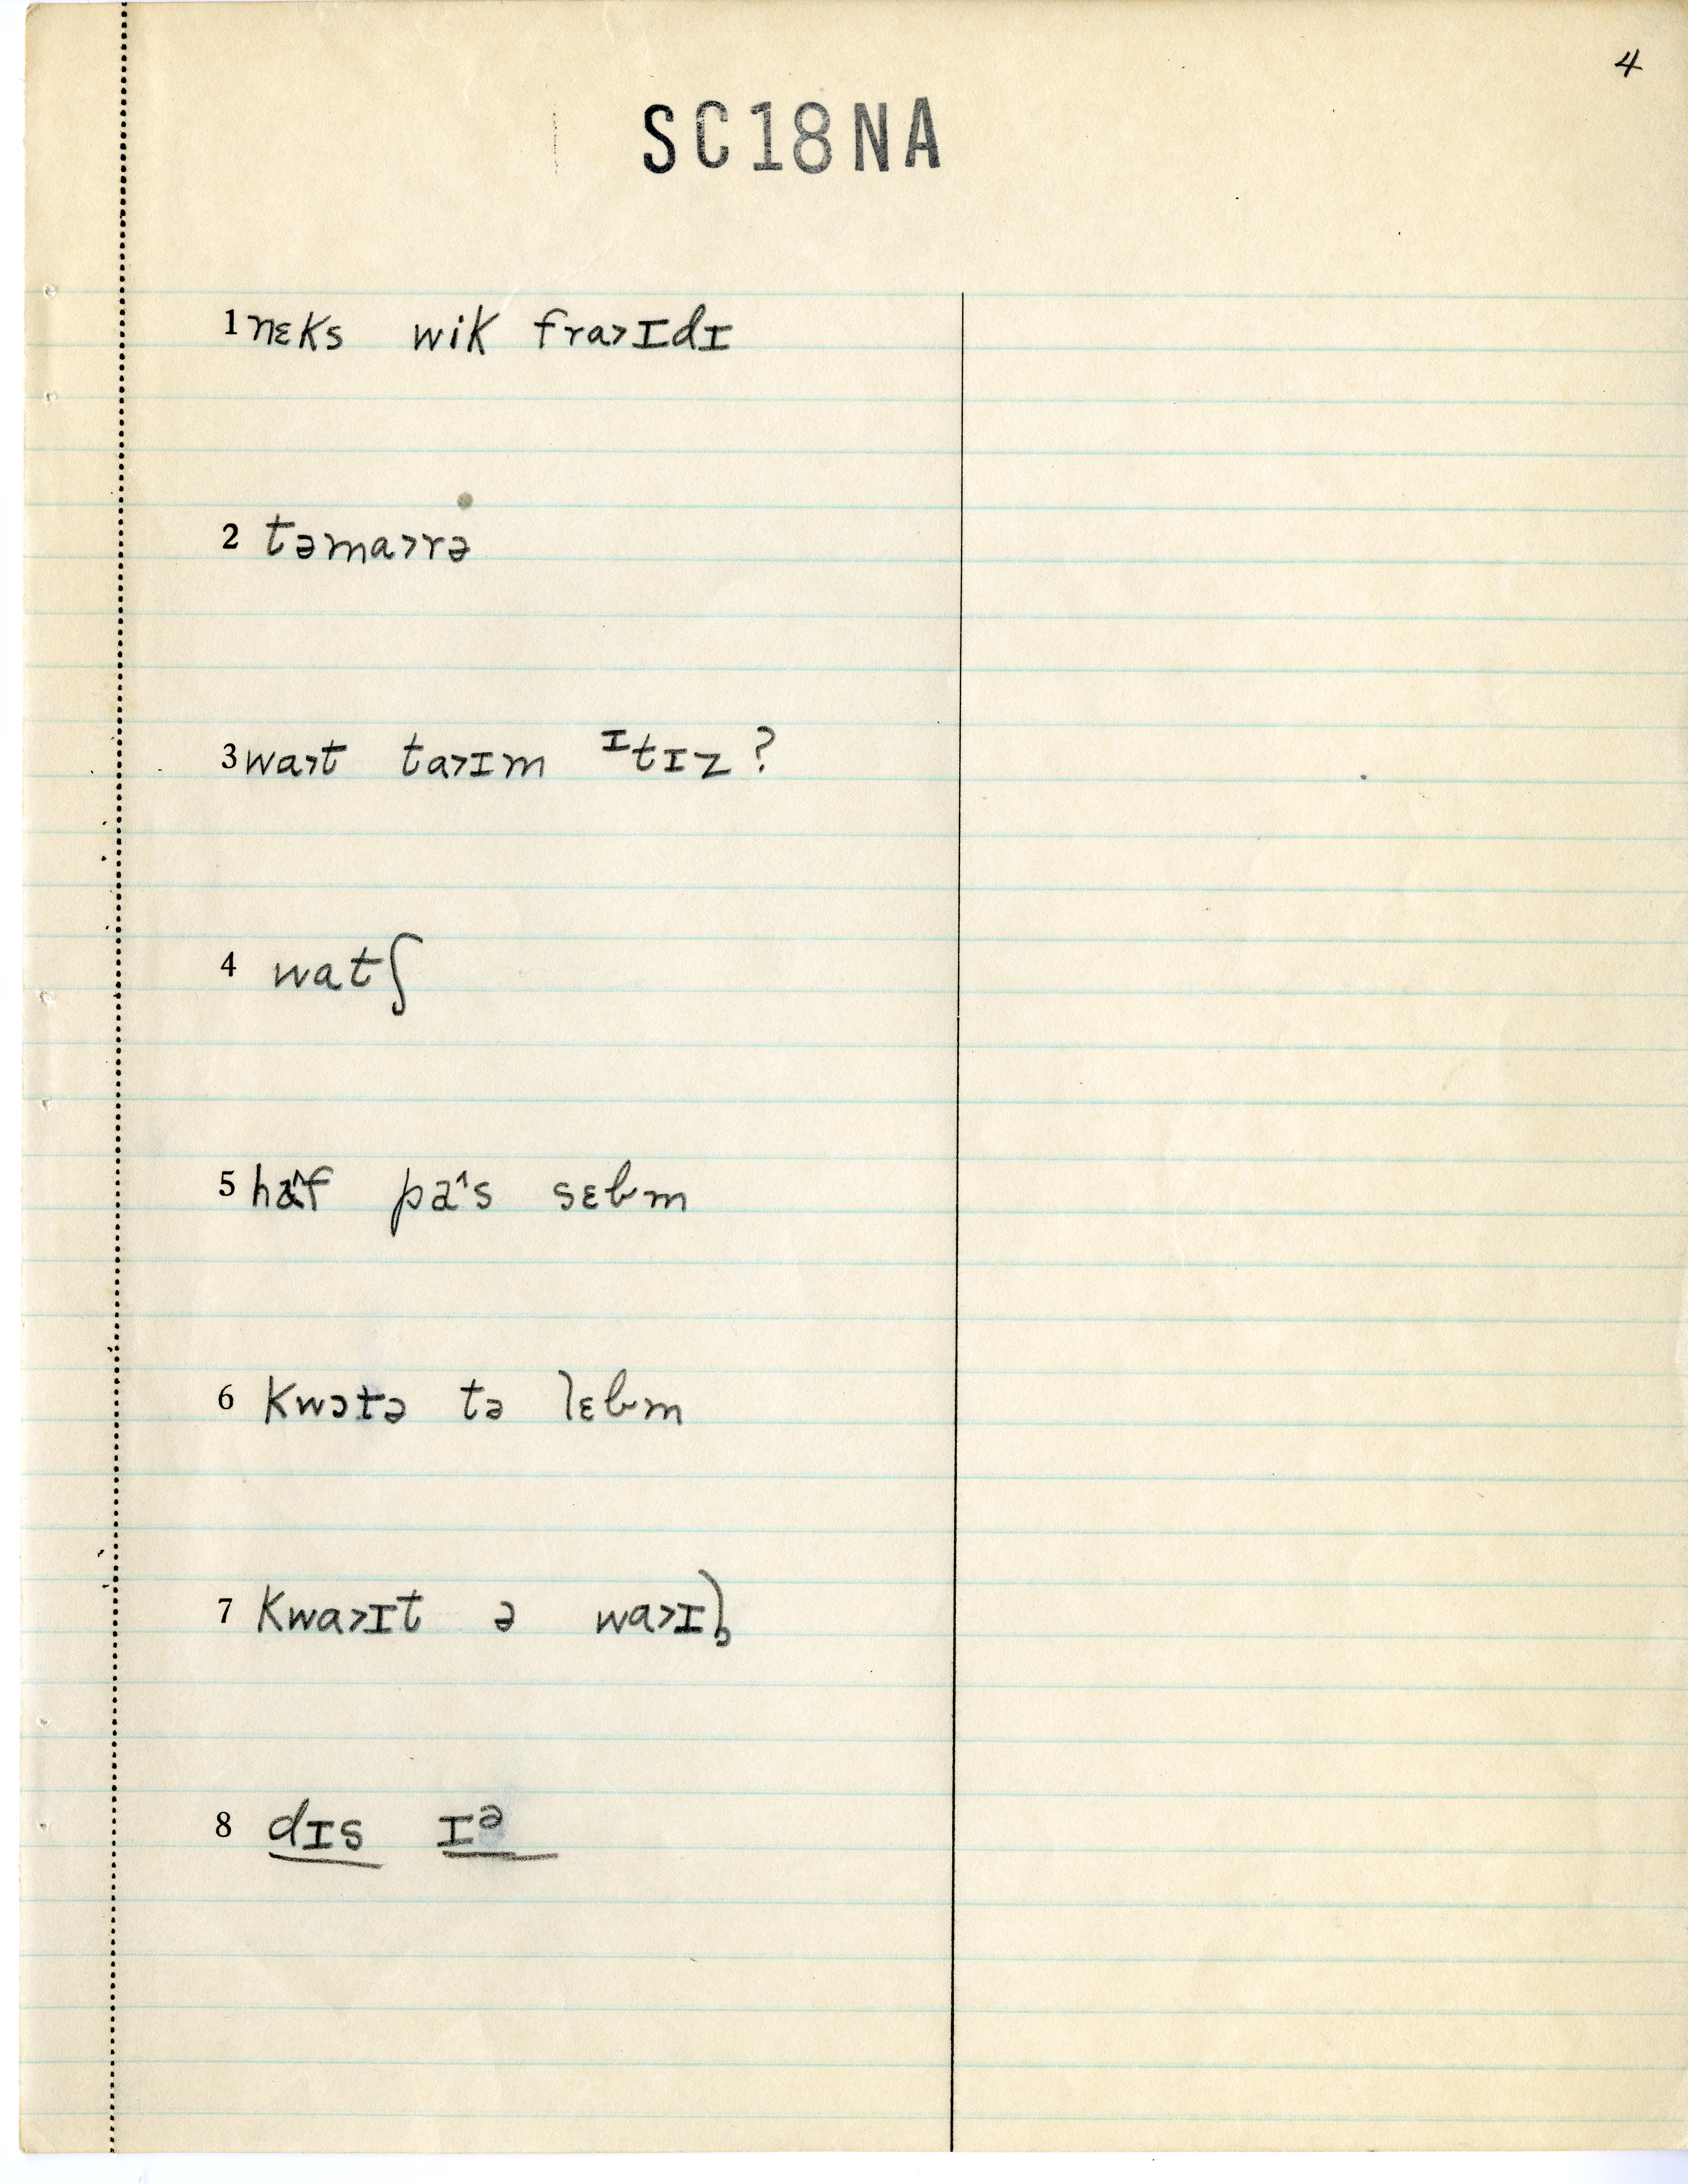 4
SC18NA
1 nɛks wik fra˃ɪdɪ
2 təma˃rə
3 wa˃t ta˃ɪm ᶦtɪz ?
4 watʃ
5 ha˄f pa˄s sɛbm
6 kwɔtə tə lɛbm
7 kwa˃ɪt ə wa˃ɪl̥
8 dɪs ɪᵊ